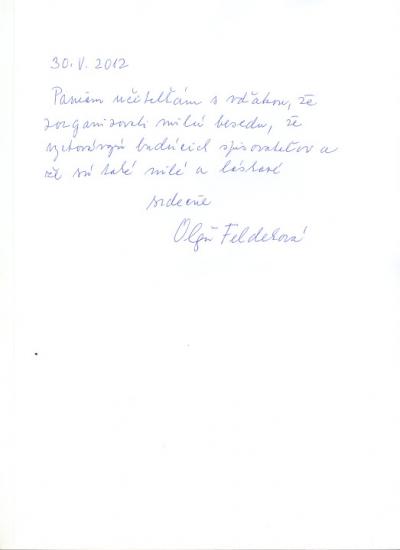 30. V. 2012
Paniam učiteľkám s vďakou, že
zorganizovali milú besedu, že
vychovávajú budúcich spisovateľov a
že sú také milé a láskavé
srdečne
Oľga Feldeková